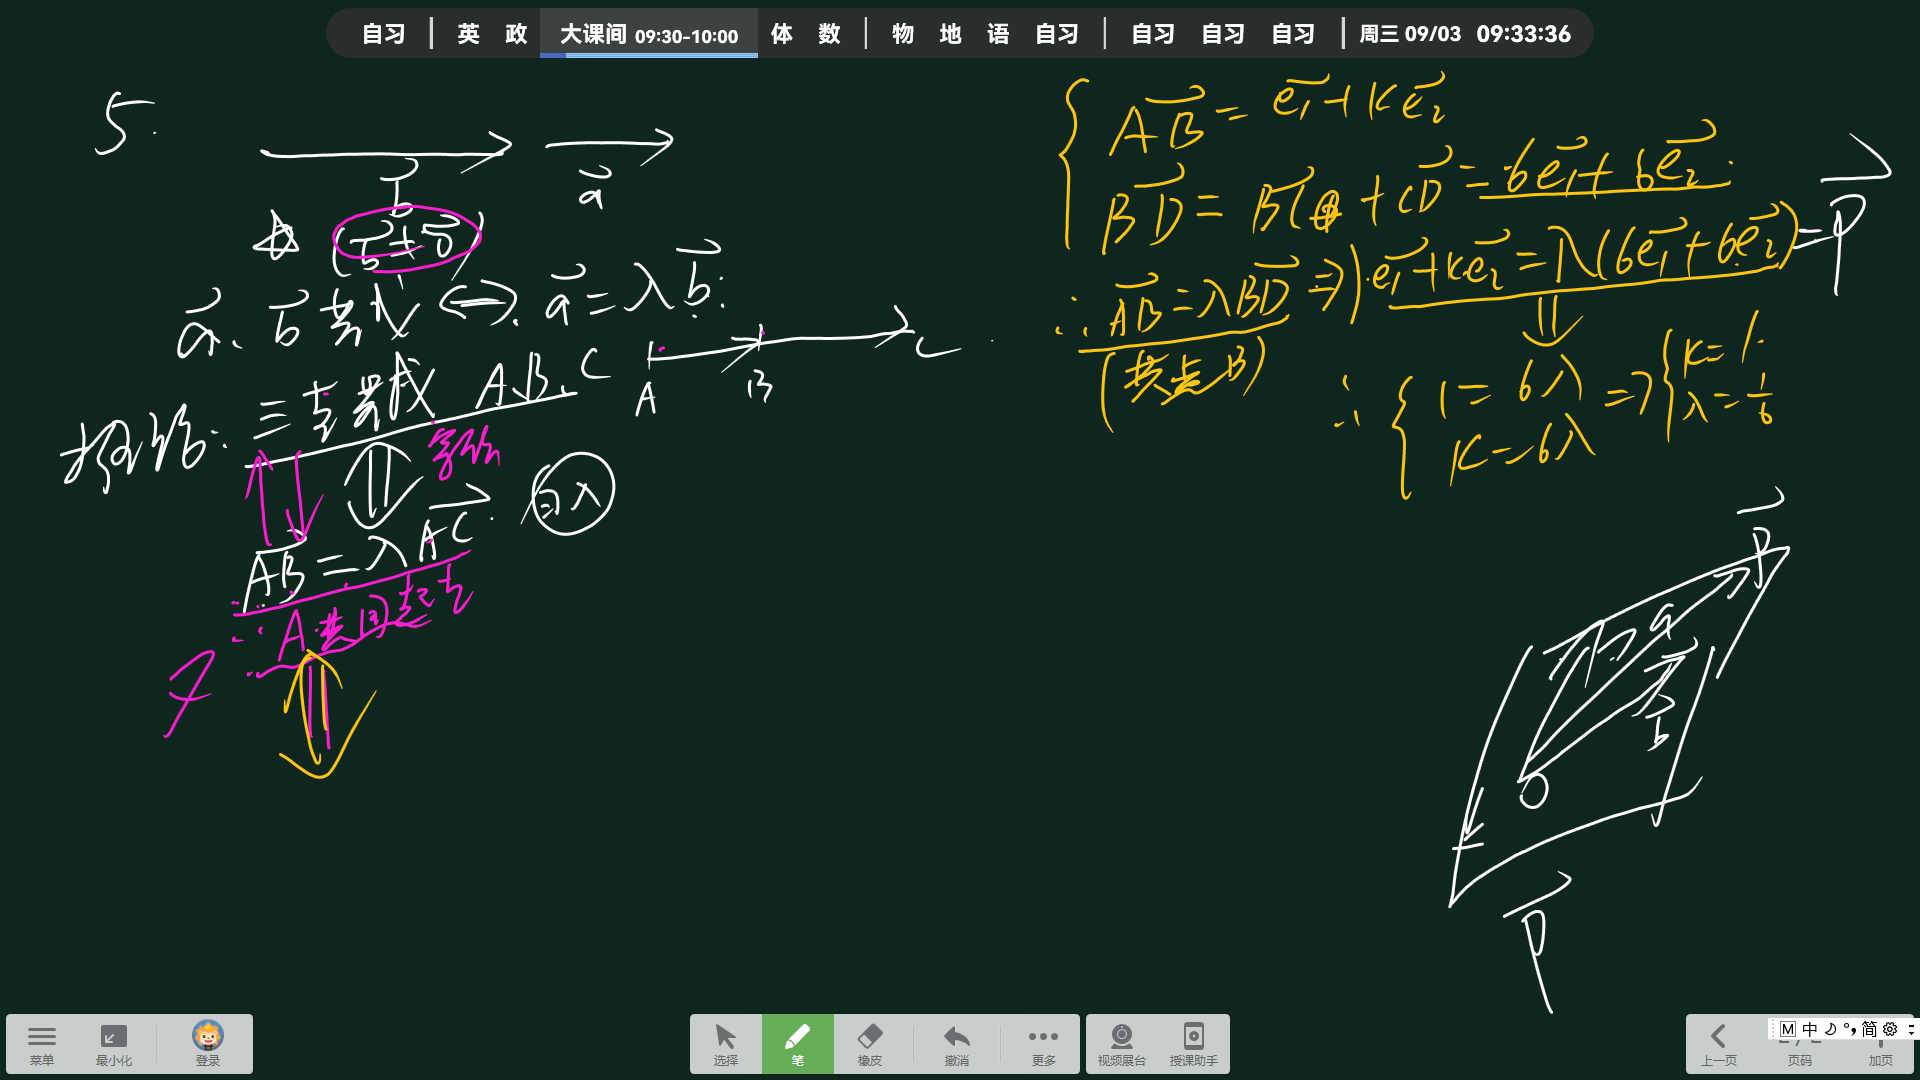 自习 | 英 政 大课间 09:30-10:00 体 数 | 物 地 语 自习 | 自习 自习 自习 | 周三 09/03 09:33:36
5.
b a
(b≠0)
a、b 共线 ⇔ a=λb
推论: 三点共线 A、B、C
A B C
AB=λAC
∴A共同起点
{ AB=e₁+ke₂
BD=BC+CD=6e₁+6e₂
∴AB=λBD ⇒ e₁+ke₂=λ(6e₁+6e₂)=P
(共点B)
∴ { 1=6λ
k=6λ
⇒ { k=1
λ=1/6
P
a
b
O
P
菜单 最小化 登录 选择 笔 橡皮 撤消 更多 视频展台 授课助手 上一页 页码 加页
M 中 简